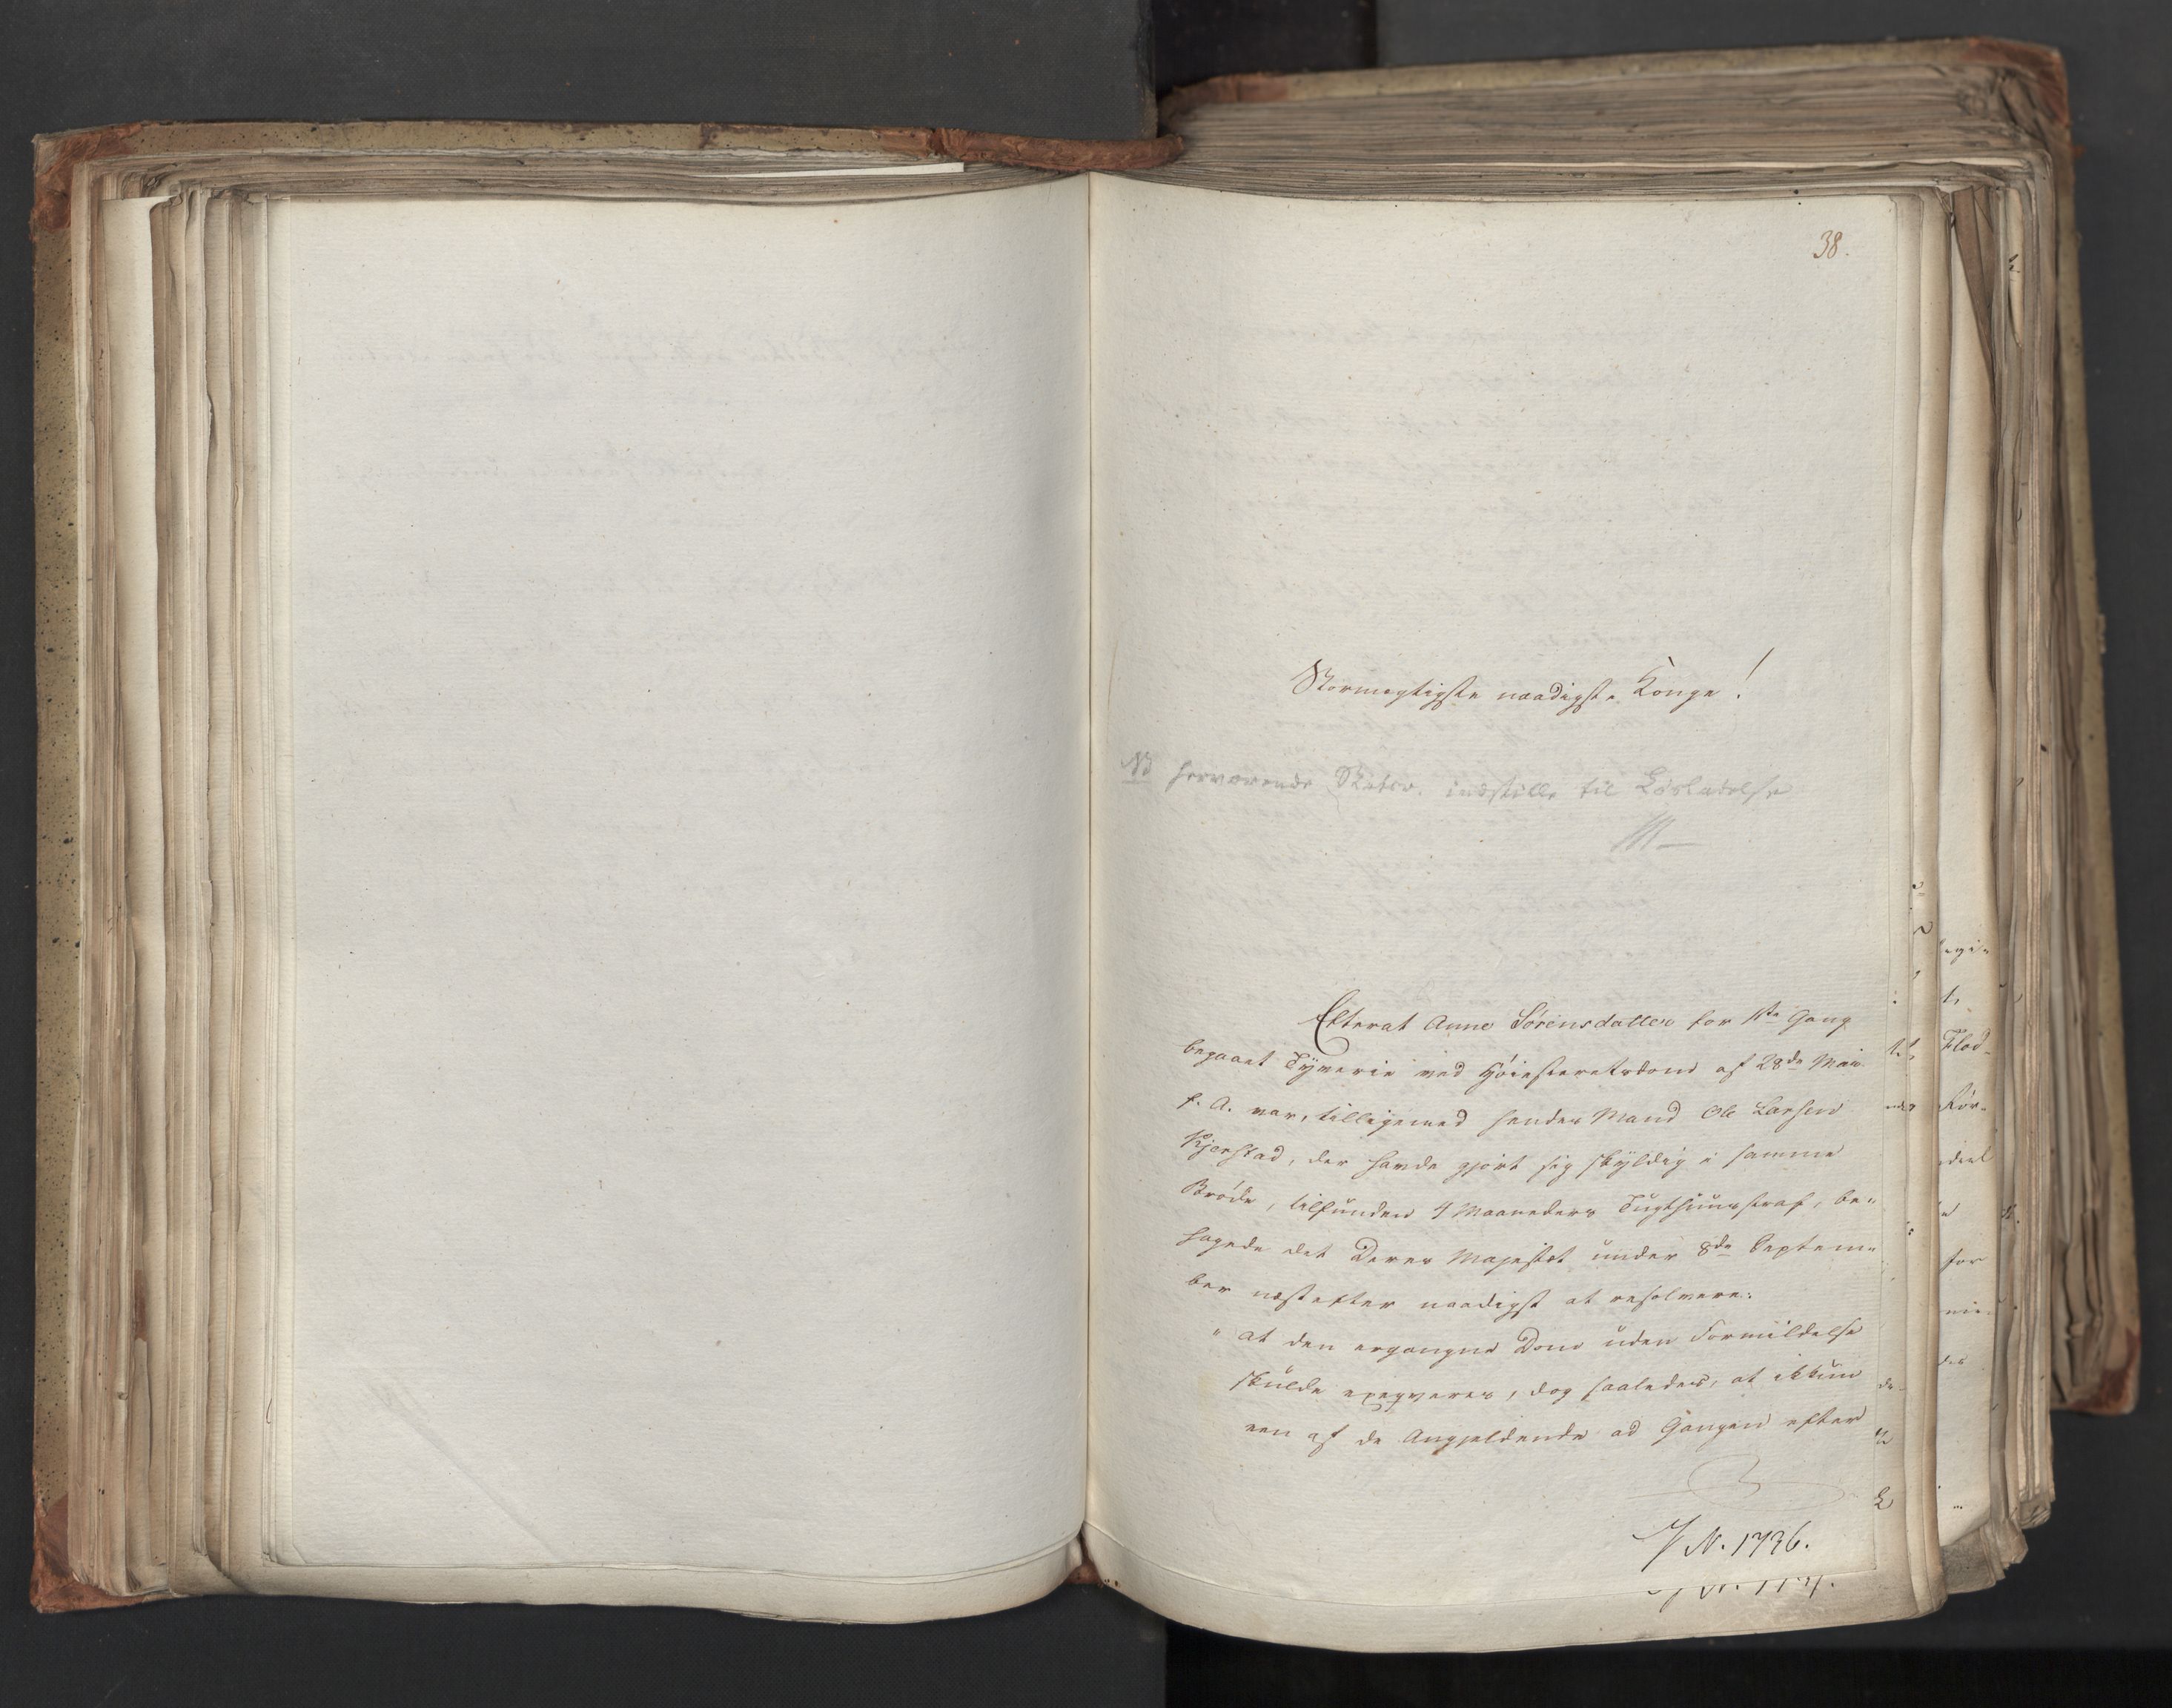 38.
Stormægtigste naadigste Konge!
NB herværende Statsr. indstille til Løsladelse
Efterat Anne Sörensdatter for 1ste Gang
begaaet Tÿverie ved Höiesteretsdom af 28de Mai
f. A. var, tilligemed hendes Mand Ole Larsen
Kjerstad, der havde gjort sig skÿldig i samme
Bröde, tilfunden 4 Maaneders Tugthuusstraf, be-
hagede det Deres Majestæt under 8de Septem-
ber næstefter naadigst at resolvere:
"at den ergangne Dom uden Formildelse
skulde exeqveres, dog saaledes, at ikkun
een af de Angjeldende ad Gangen efter
J N. 1736.